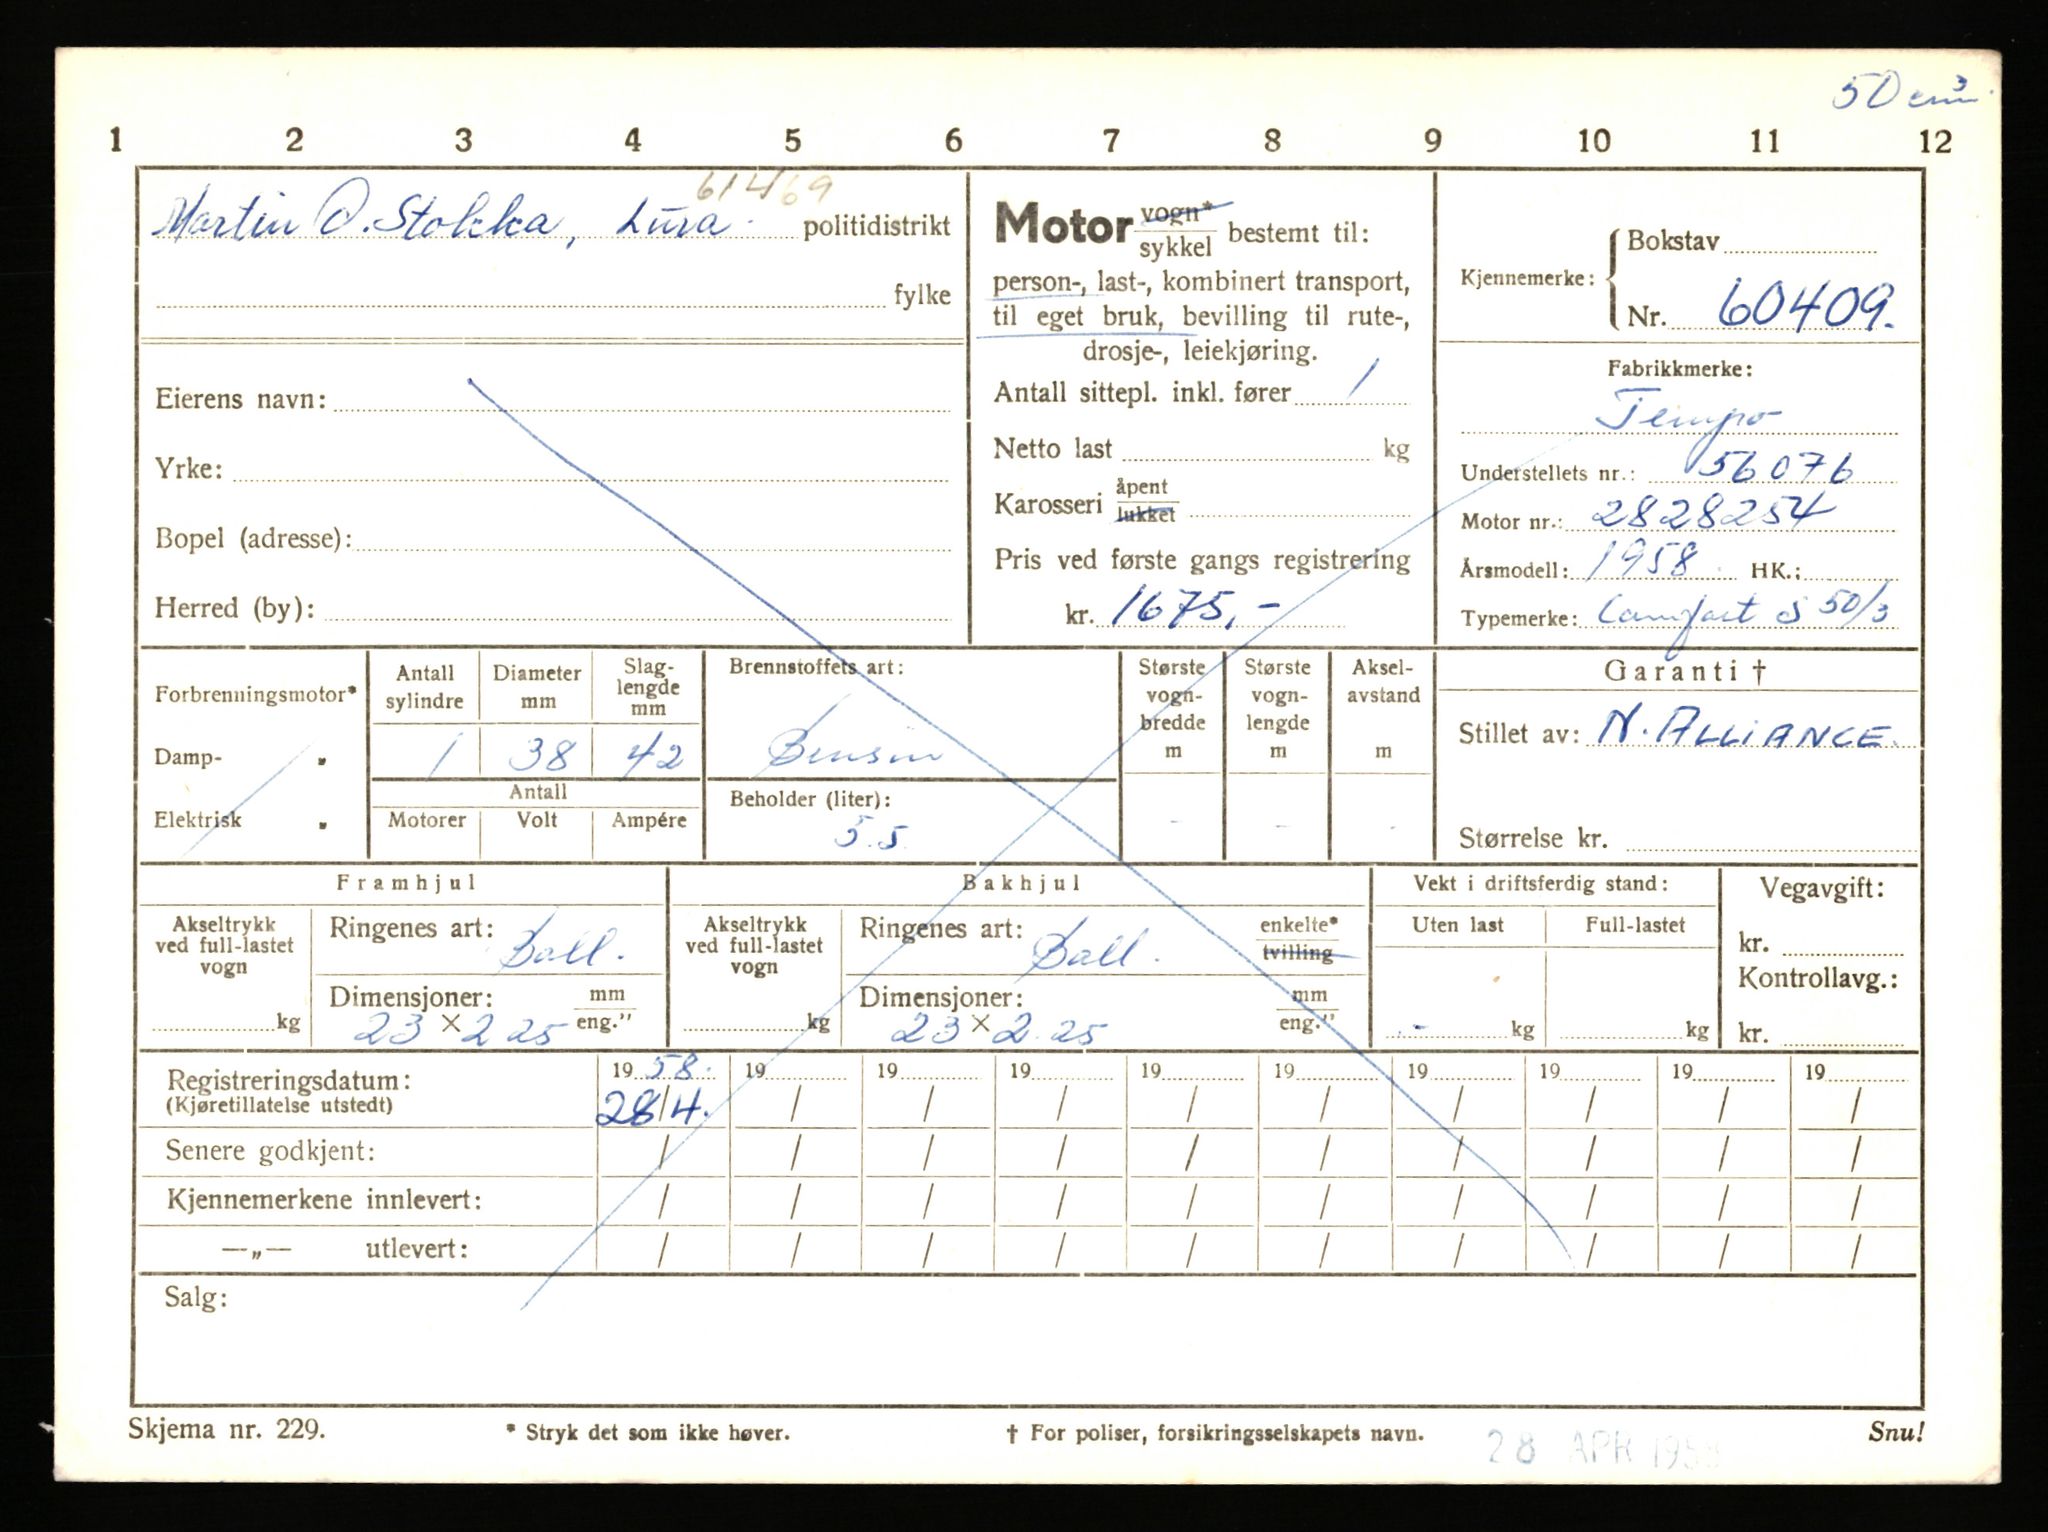 50 cm³.
1 2 3 4 5 6 7 8 9 10 11 12
61469
Martin O. Stokka, Lura. politidistrikt
fylke
Eierens navn:
Yrke:
Bopel (adresse):
Herred (by):
Motor vogn* / sykkel bestemt til:
person-, last-, kombinert transport,
til eget bruk, bevilling til rute-,
drosje-, leiekjøring.
Antall sittepl. inkl. fører 1
Netto last kg
Karosseri åpent / lukket
Pris ved første gangs registrering
kr. 1675,-
Kjennemerke: { Bokstav
Nr. 60409.
Fabrikkmerke:
Tempo
Understellets nr.: 56076
Motor nr.: 2828254
Årsmodell: 1958. HK.:
Typemerke: Comfort S 50/3
Forbrenningsmotor*
Damp- "
Elektrisk "
Antall sylindre
Diameter mm
Slag-lengde mm
1 38 42
Antall
Motorer Volt Ampére
Brennstoffets art:
Bensin
Beholder (liter):
5.5.
Største vogn-bredde m
Største vogn-lengde m
Aksel-avstand m
- - -
Garanti †
Stillet av: N. ALLIANCE.
Størrelse kr.
Framhjul
Akseltrykk ved full-lastet vogn
kg
Ringenes art: Ball.
Dimensjoner: mm / eng."
23 × 2 25
Bakhjul
Akseltrykk ved full-lastet vogn
kg
Ringenes art: Ball. enkelte* / tvilling
Dimensjoner: mm / eng."
23 × 2.25
Vekt i driftsferdig stand:
Uten last Full-lastet
.- kg kg
Vegavgift:
kr.
Kontrollavg.:
kr.
Registreringsdatum: 19 58. 19 19 19 19 19 19 19 19 19
(Kjøretillatelse utstedt) 28/4. / / / / / / / / /
Senere godkjent: / / / / / / / / / /
Kjennemerkene innlevert: / / / / / / / / / /
—„— utlevert: / / / / / / / / / /
Salg:
Skjema nr. 229. * Stryk det som ikke høver. † For poliser, forsikringsselskapets navn. Snu!
28 APR 1958